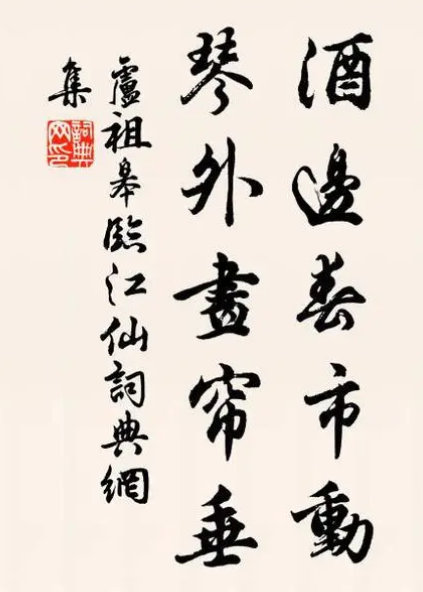 酒邊春市動
琴外畫帘垂
盧祖皋臨江仙詞典網
集
詞典
网印